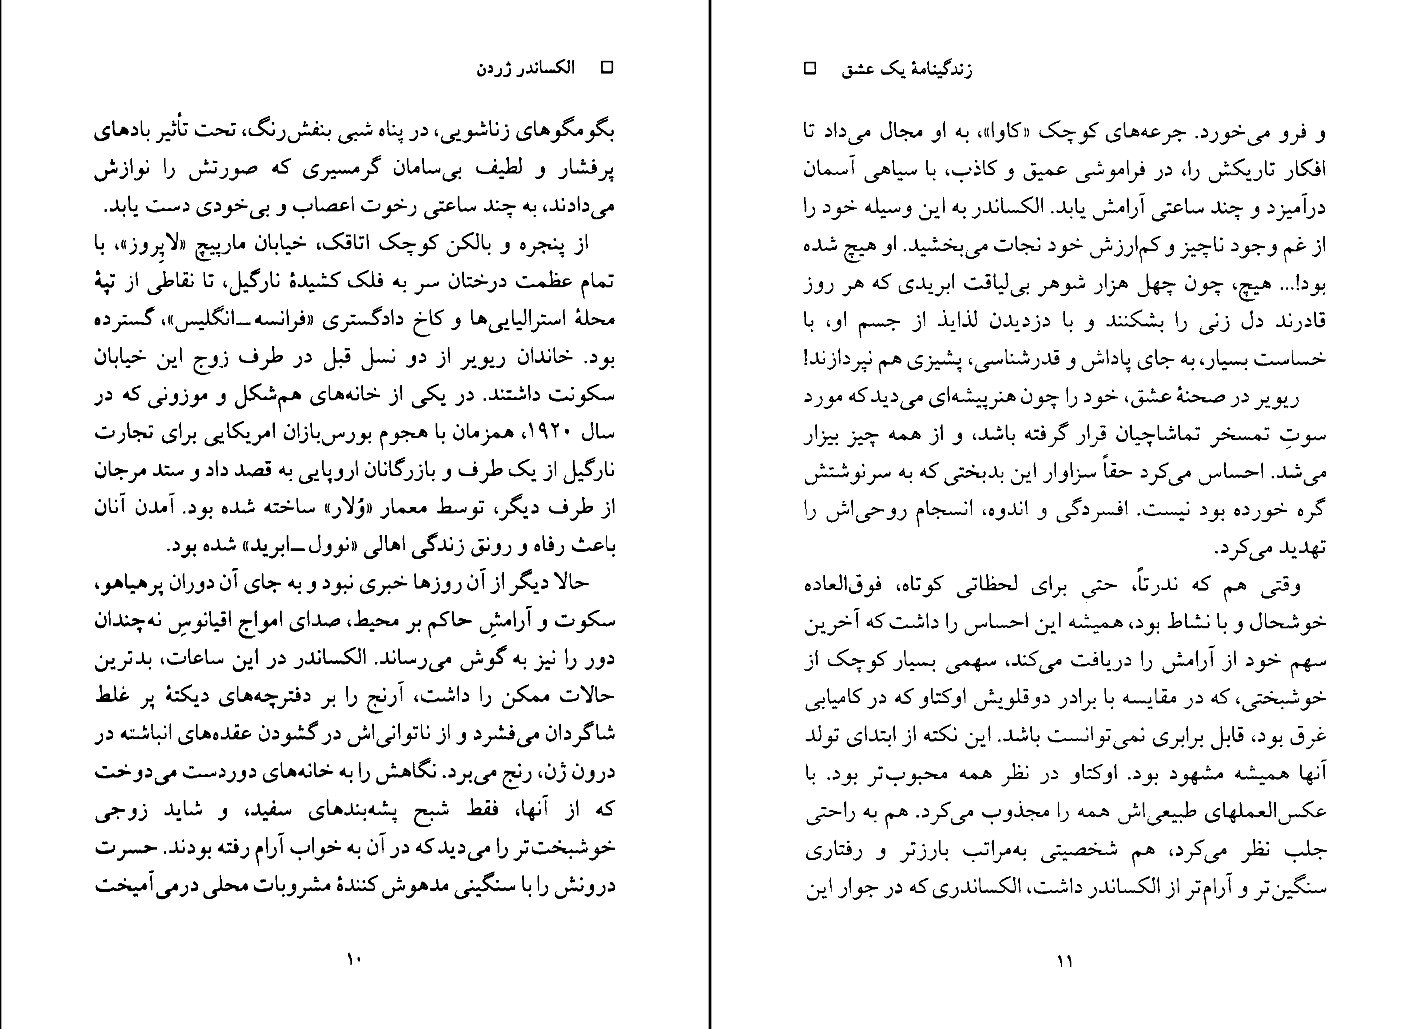 □ الکساندر ژردن
بگومگوهای زناشویی، در پناه شبی بنفش‌رنگ، تحت تأثیر بادهای
پرفشار و لطیف بی‌سامان گرمسیری که صورتش را نوازش
می‌دادند، به چند ساعتی رخوت اعصاب و بی‌خودی دست یابد.
از پنجره و بالکن کوچک اتاقک، خیابان مارپیچ «لاپِروز»، با
تمام عظمت درختان سر به فلک کشیدهٔ نارگیل، تا نقاطی از تپهٔ
محلهٔ استرالیایی‌ها و کاخ دادگستری «فرانسه-انگلیس»، گسترده
بود. خاندان ریویر از دو نسل قبل در طرف زوج این خیابان
سکونت داشتند. در یکی از خانه‌های هم‌شکل و موزونی که در
سال ۱۹۲۰، همزمان با هجوم بورس‌بازان امریکایی برای تجارت
نارگیل از یک طرف و بازرگانان اروپایی به قصد داد و ستد مرجان
از طرف دیگر، توسط معمار «وُلار» ساخته شده بود. آمدن آنان
باعث رفاه و رونق زندگی اهالی «نوول-ابرید» شده بود.
حالا دیگر از آن روزها خبری نبود و به جای آن دوران پرهیاهو،
سکوت و آرامشِ حاکم بر محیط، صدای امواج اقیانوسِ نه‌چندان
دور را نیز به گوش می‌رساند. الکساندر در این ساعات، بدترین
حالات ممکن را داشت، آرنج را بر دفترچه‌های دیکتهٔ پر غلط
شاگردان می‌فشرد و از ناتوانی‌اش در گشودن عقده‌های انباشته در
درون ژن، رنج می‌برد. نگاهش را به خانه‌های دوردست می‌دوخت
که از آنها، فقط شبح پشه‌بندهای سفید، و شاید زوجی
خوشبخت‌تر را می‌دید که در آن به خواب آرام رفته بودند. حسرت
درونش را با سنگینی مدهوش کنندهٔ مشروبات محلی درمی‌آمیخت
۱۰
زندگینامهٔ یک عشق □
و فرو می‌خورد. جرعه‌های کوچک «کاوا»، به او مجال می‌داد تا
افکار تاریکش را، در فراموشی عمیق و کاذب، با سیاهی آسمان
درآمیزد و چند ساعتی آرامش یابد. الکساندر به این وسیله خود را
از غم وجود ناچیز و کم‌ارزش خود نجات می‌بخشید. او هیچ شده
بود!... هیچ، چون چهل هزار شوهر بی‌لیاقت ابریدی که هر روز
قادرند دل زنی را بشکنند و با دزدیدن لذایذ از جسم او، با
خساست بسیار، به جای پاداش و قدرشناسی، پشیزی هم نپردازند!
ریویر در صحنهٔ عشق، خود را چون هنرپیشه‌ای می‌دید که مورد
سوتِ تمسخر تماشاچیان قرار گرفته باشد، و از همه چیز بیزار
می‌شد. احساس می‌کرد حقاً سزاوار این بدبختی که به سرنوشتش
گره خورده بود نیست. افسردگی و اندوه، انسجام روحی‌اش را
تهدید می‌کرد.
وقتی هم که ندرتاً، حتی برای لحظاتی کوتاه، فوق‌العاده
خوشحال و با نشاط بود، همیشه این احساس را داشت که آخرین
سهم خود از آرامش را دریافت می‌کند، سهمی بسیار کوچک از
خوشبختی، که در مقایسه با برادر دوقلویش اوکتاو که در کامیابی
غرق بود، قابل برابری نمی‌توانست باشد. این نکته از ابتدای تولد
آنها همیشه مشهود بود. اوکتاو در نظر همه محبوب‌تر بود. با
عکس‌العملهای طبیعی‌اش همه را مجذوب می‌کرد. هم به راحتی
جلب نظر می‌کرد، هم شخصیتی به‌مراتب بارزتر و رفتاری
سنگین‌تر و آرام‌تر از الکساندر داشت، الکساندری که در جوار این
۱۱